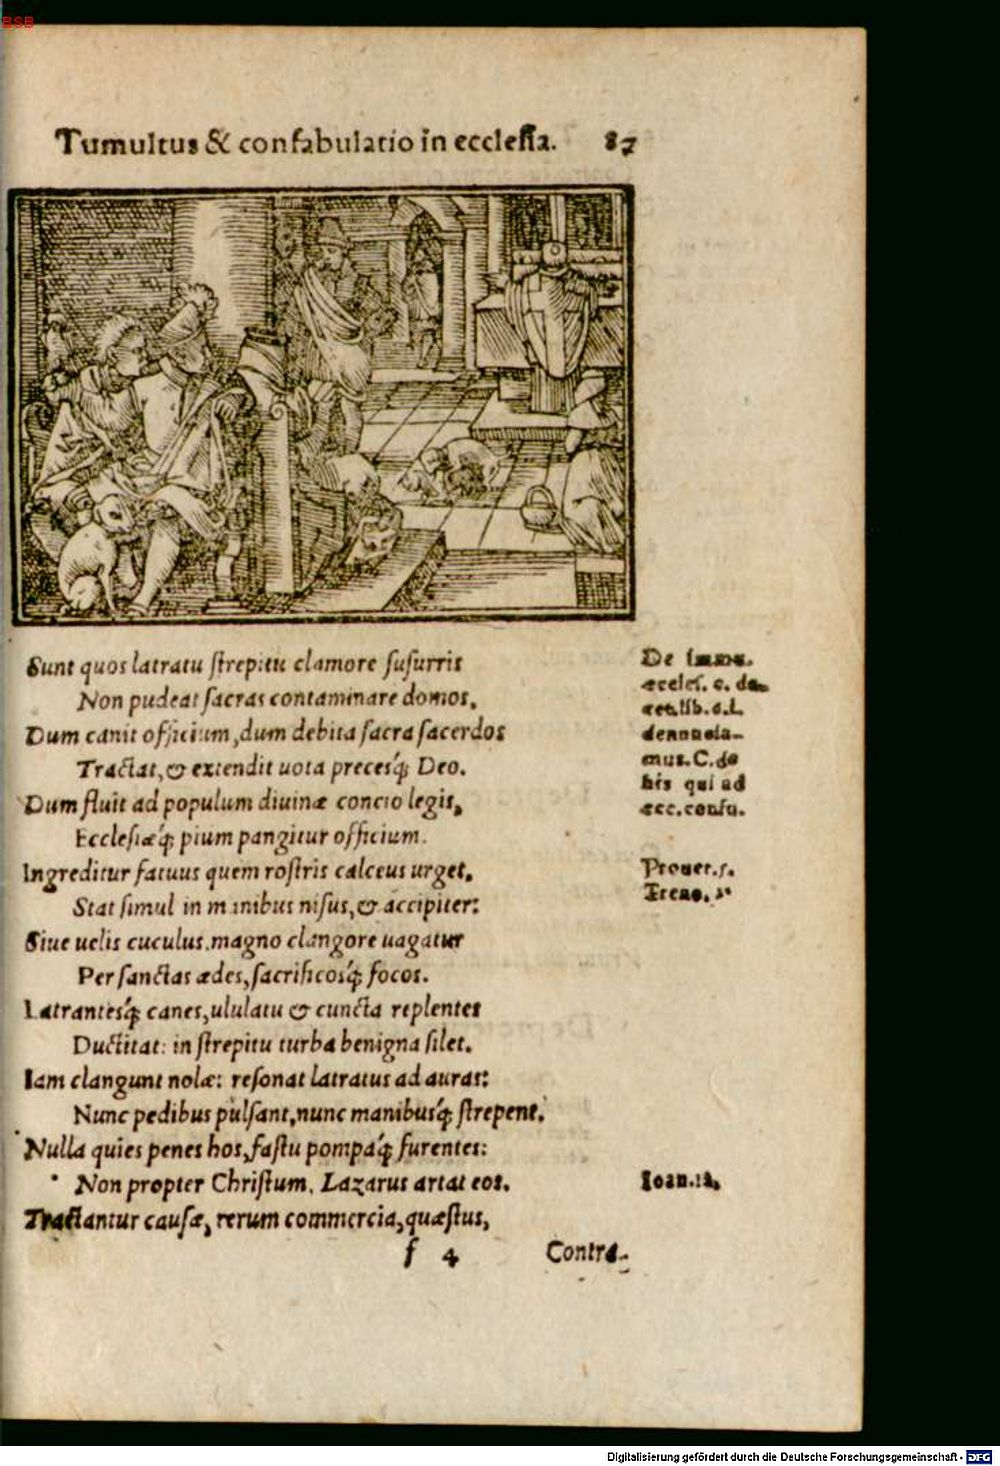 BSB
Tumultus & confabulatio in ecclesia. 87
Sunt quos latratu strepitu clamore susurris
Non pudeat sacras contaminare domos,
Dum canit officium, dum debita sacra sacerdos
Tractat, & extendit uota precesq́; Deo.
Dum fluit ad populum diuinæ concio legis,
Ecclesiæq́; pium pangitur officium.
Ingreditur fatuus quem rostris calceus urget,
Stat simul in manibus nisus, & accipiter:
Siue uelis cuculus, magno clangore uagatur
Per sanctas ædes, sacrificosq́; focos.
Latrantesq́; canes, ululatu & cuncta replentes
Ductitat: in strepitu turba benigna silet.
Iam clangunt nolæ: resonat latratus ad auras:
Nunc pedibus pulsant, nunc manibusq́; strepent.
Nulla quies penes hos, fastu pompaq́; furentes:
Non propter Christum, Lazarus artat eos.
Tractantur causæ, rerum commercia, quæstus,
f 4 Contra-
De
eccles. c. de-
denuncia-
mus. C. de
his qui ad
ecc. confu.
Prouer. 5.
Ioan. 12.
Digitalisierung gefördert durch die Deutsche Forschungsgemeinschaft - DFG